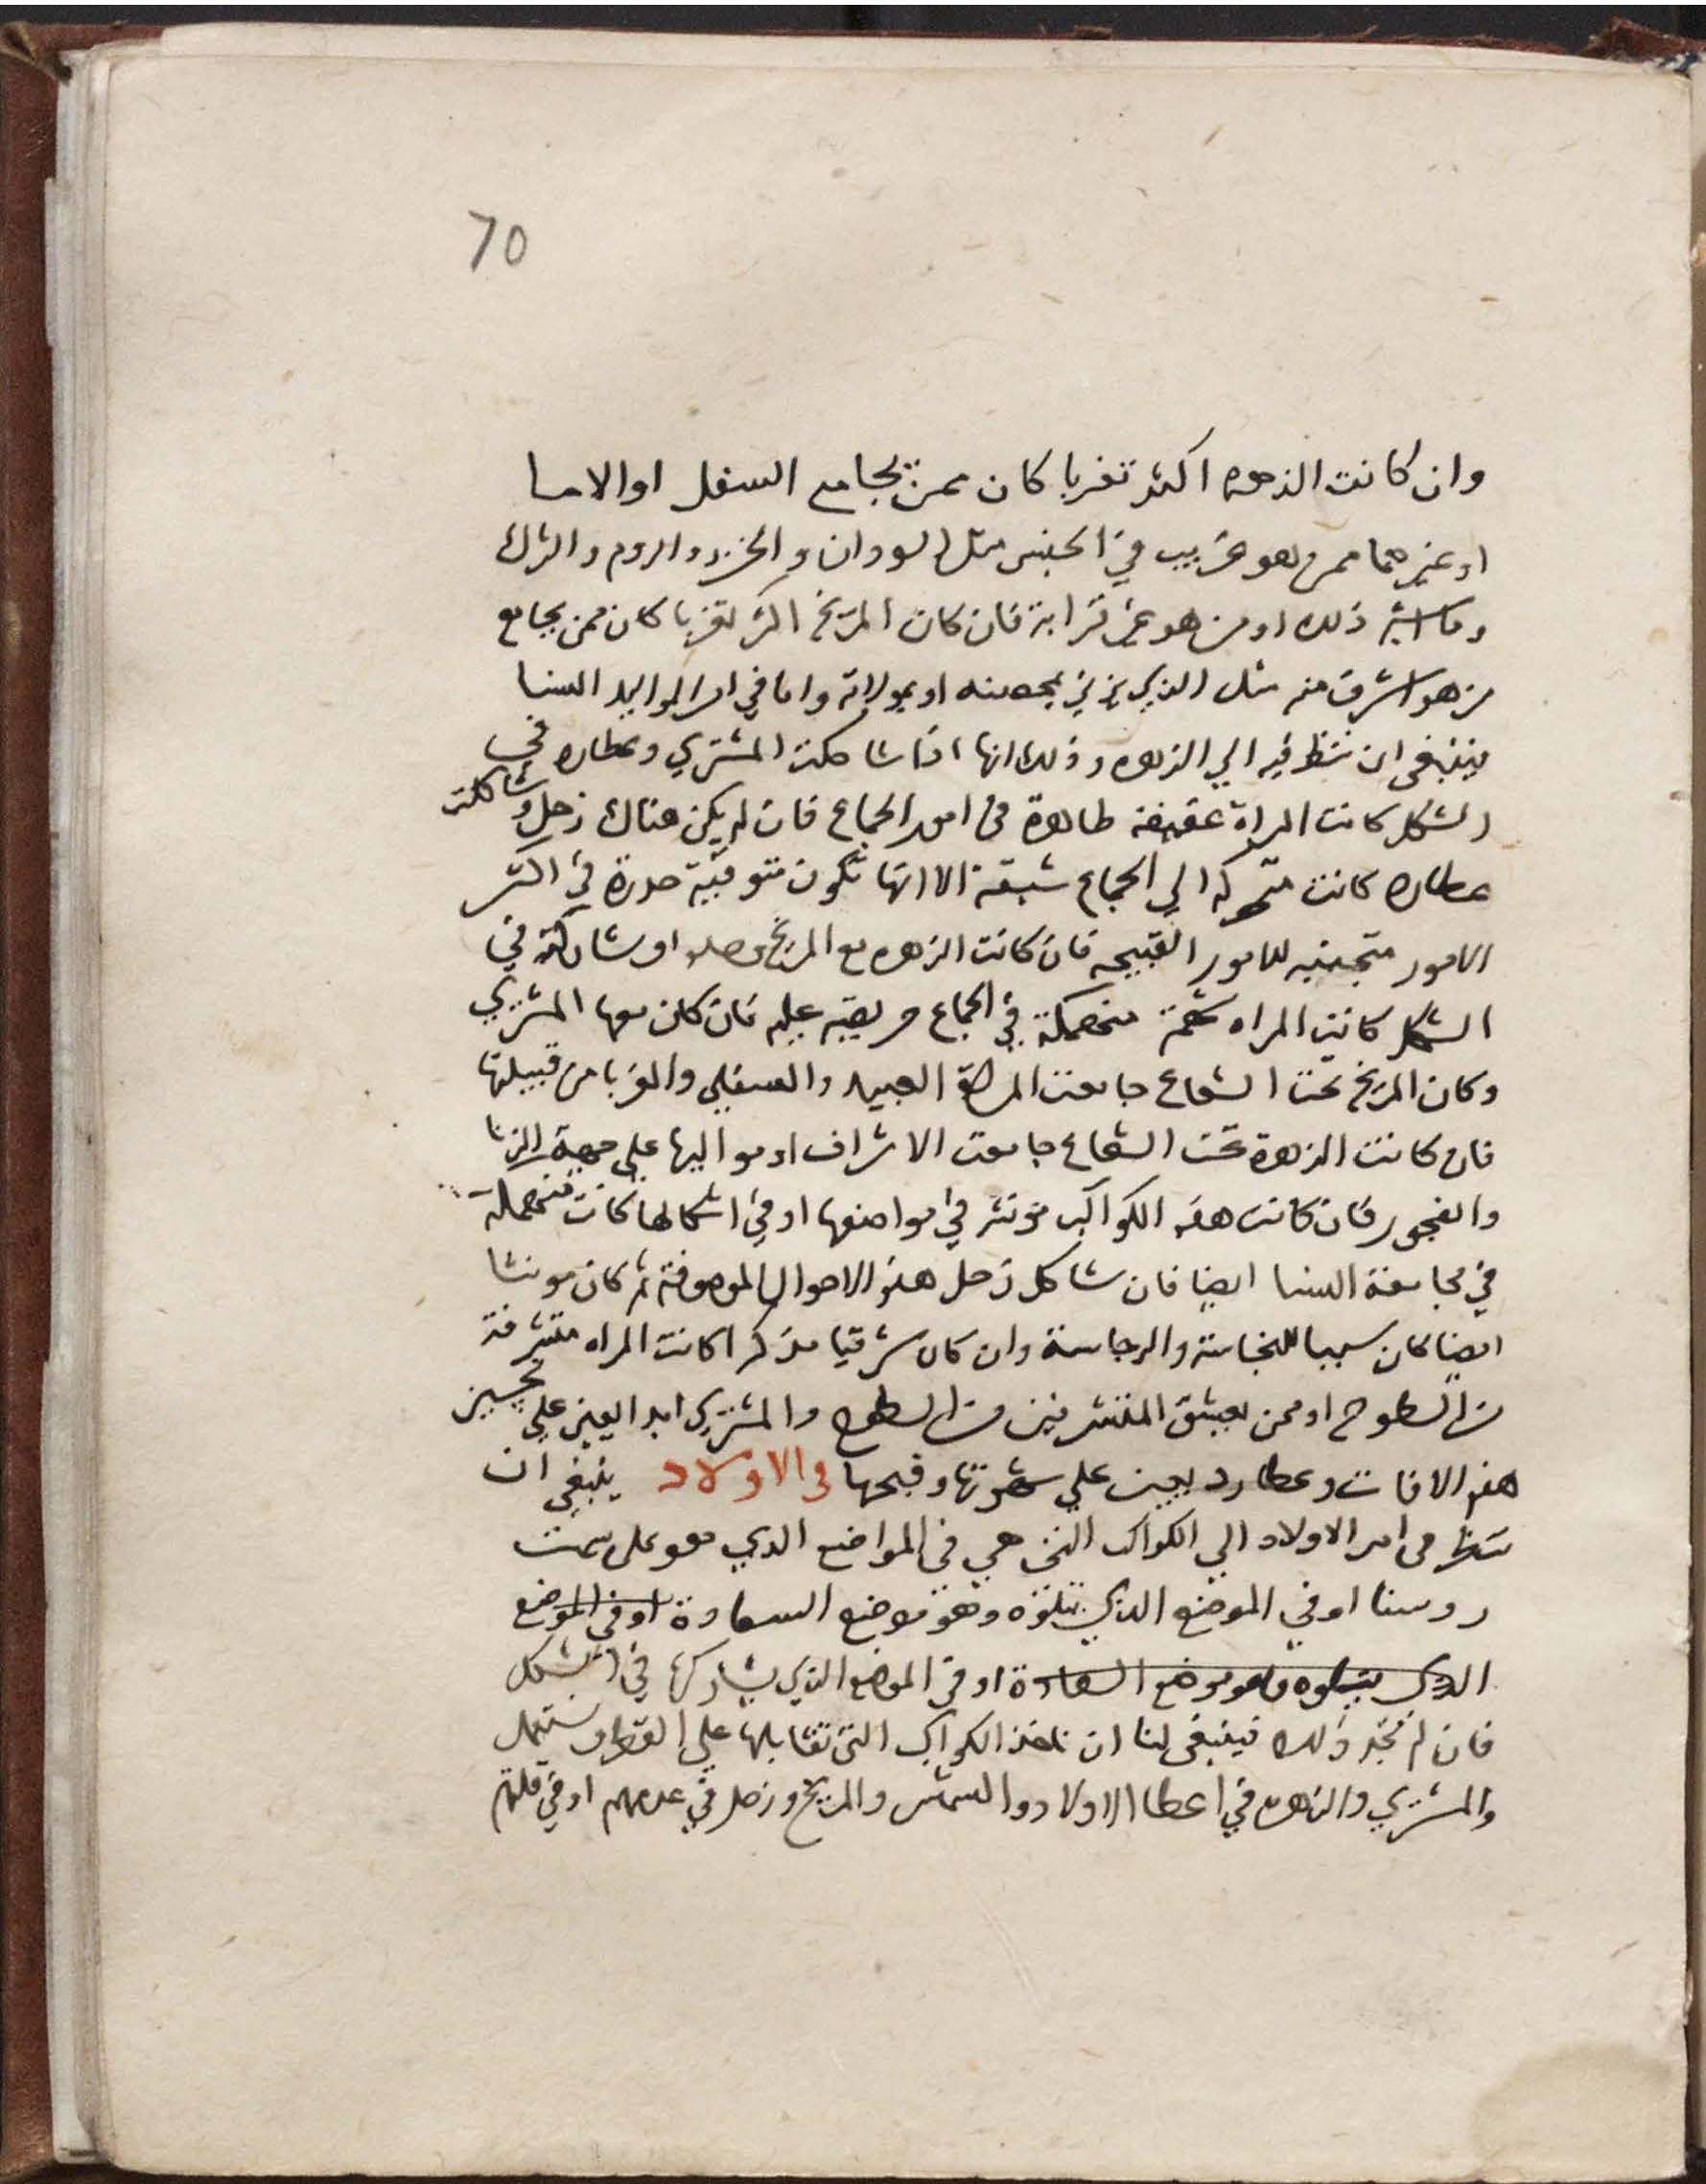 70
وان كانت الزهره اكثر تغربا كان ممن يجامع السفل او الاما
او غيرهما ممن هو غريب في الجنس مثل السودان و الخزر والروم والترك
وما اشبه ذلك او من هو غير قرابة فان كان المريخ اكثر تغربا كان ممن يجامع
من هو اشرف منه مثل الذي يزني بمحصنه او بمولاته واما في امر المواليد النسا
فينبغى ان ننظر فيه الي الزهره وذلك انها اذا شاكلت المشتري وعطارد في
الشكل كانت المراة عفيفة طاهرة في امور الجماع فان لم يكن هناك زحل وشاكلت
عطارد كانت متحركه الي الجماع شبقة الا انها تكون متوقية حدرة في اكثر
الامور متجنبه للامور القبيحه فان كانت الزهره مع المريخ وحده او شاركته في
الشكل كانت المراه منهمكة في الجماع حريصة عليه فان كان معها المشتري
وكان المريخ تحت الشعاع جامعت المراة العبيد والسفلي والغربا من قبيلتها
فان كانت الزهرة تحت الشعاع جامعت الاشراف او مواليها علي جهة الزنا
والفجور فان كانت هذه الكواكب مؤنثه في مواضعها او في اشكالها كانت منهمكة
في مجامعة النسا ايضا فان شاكل زحل هذه الاحوال الموصوفة ثم كان مونثا
ايضا كان سببا للنجاسة والرجاسة وان كان شرقيا مذكرا كانت المراه متشرفة
من السطوح او ممن يعشق المتشرفين من السطوح والمشتري ابدا يعين علي تحسين
هذه الافات وعطارد يعين علي شهرتها وقبحها في الاولاد ينبغي ان
ننظر في امر الاولاد الي الكواكب التي هي في المواضع الدي هو على سمت
روسنا او في الموضع الذي يتلوه وهو موضع السعادة او في الموضع
الدي يتلوه وهو موضع السعادة او في الموضع الذي يشاركها في الشكل
فان لم نجد ذلك فينبغى لنا ان ناخذ الكواكب التي تقابلها علي القطر ونستعمل
والمشتري والزهره في اعطا الاولاد والشمس والمريخ وزحل في عدمهم او في قلتهم